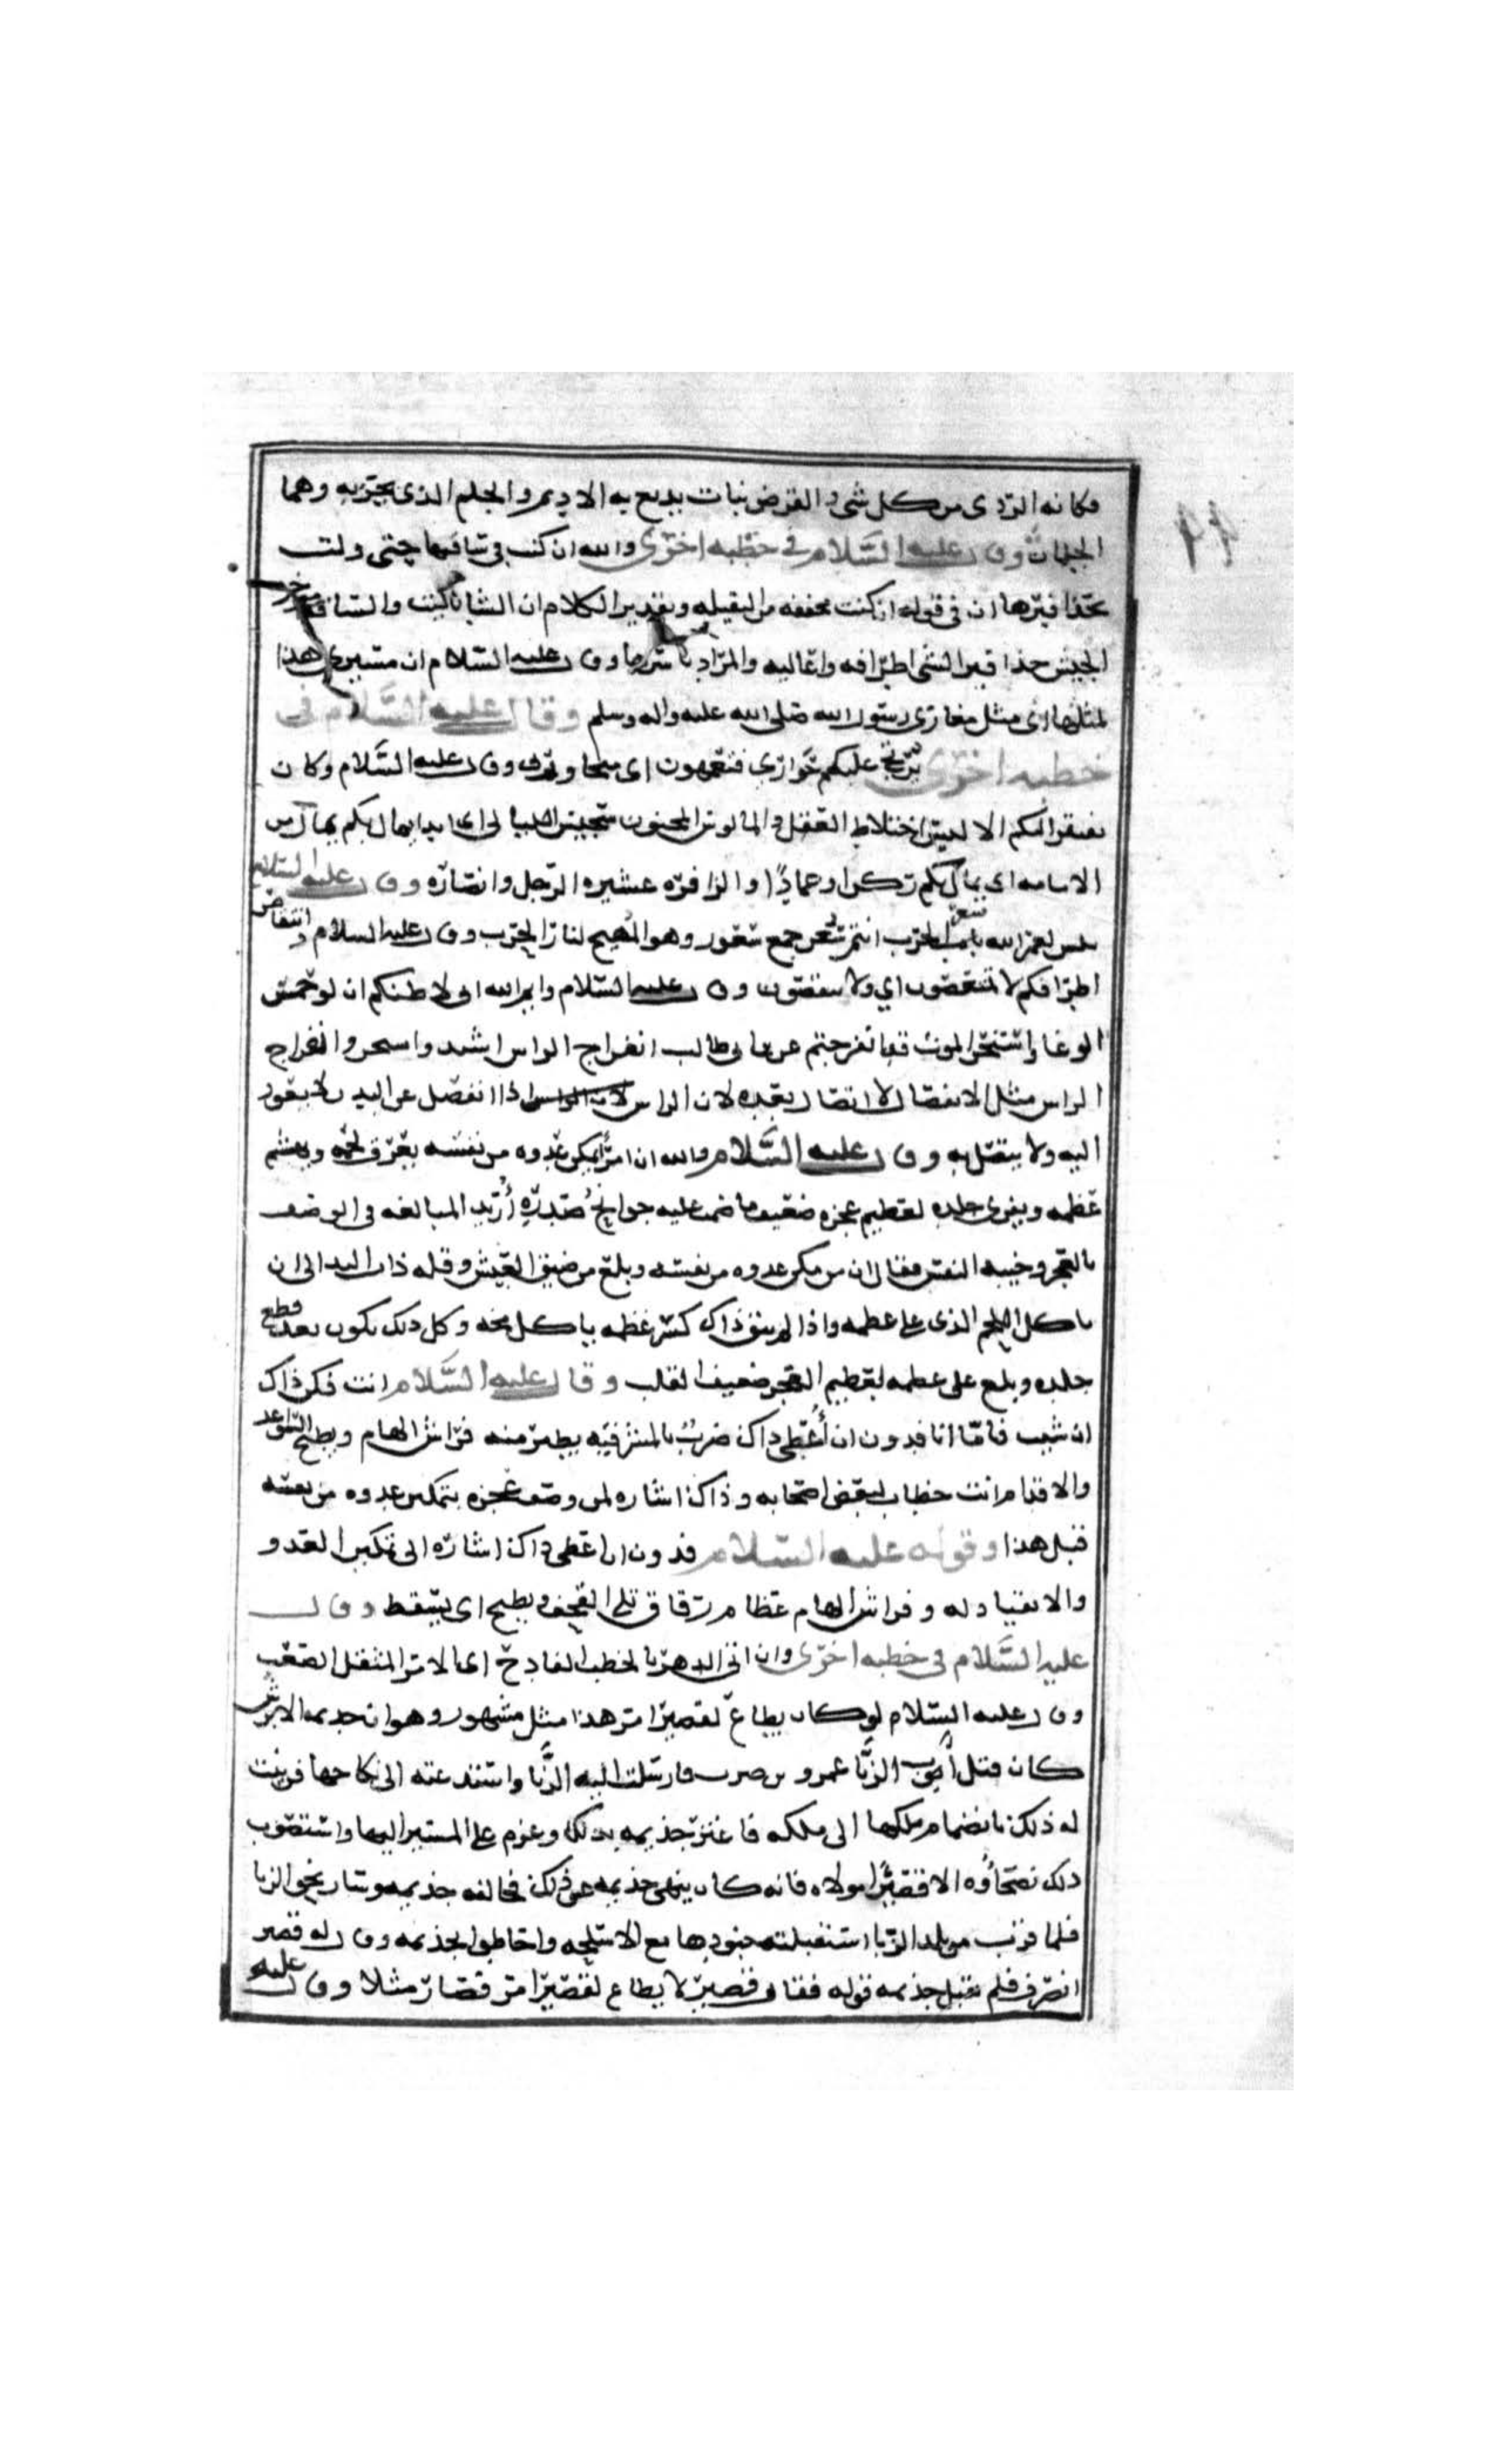 وكانه الردى من كل شى والقرض نبات يدبغ به الاديم والجلم الذى يجتز به وهما
الجلمان وقال عليه السَّلام في خطبه اخرى والله ان كنت في ساقتها حتى ولت
بحذافيرها ان في قوله ان كنت مخففه من الثقيله وتقدير الكلام ان الشان كنت والساقه موخر
الجيش حذافير الشى اطرافه واعاليه والمراد باسرها وقال عليه السّلام ان مسيرى هذا
لمثلها اى مثل مغازى رسول الله صلى الله عليه واله وسلم وقال عليه السَّلام في
خطبه اخرى يرتج عليكم حوارى فتعمهون اى وقال عليه السَّلام وكان
الالس اختلاط العقل والمالوس المجنون سجيس الليالى اى ابدا يمال بكم يمال من
الاسامه اى يمال بكم ركن اوعمادًا والزافره عشيره الرجل وانصاره وقال عليه السلام
لبس لعمر الله سعر الحرب انتم سعر جمع سعور وهو المهيج لنار الحرب وقال عليه السلام وانتقاص
اطرافكم لا تمتعضون اي ولا وقال عليه السّلام وايم الله انى لاظنكم ان لو حمس
الوغا واستحر الموت قد انفرجتم عن ابى طالب انفراج الراس اشد واستحر وانفراج
الراس مثل لانفصال لا اتصال بعده لان الراس اذا انفصل عن البدن لا يعود
اليه ولا يتصل به وقال عليه السَّلام والله ان امرًا يمكن عدوه من نفسه يعرق لحمه ويهشم
عظمه ويفرى جلده لعظيم عجزه ضعيف ما ضمت عليه جوانحُ صَدرِهِ اُرِيد المبالغه فى الوصف
بالعجز وخيبه النفس فقال ان من مكن عدوه من نفسه وبلغ من ضيق العيش وقله ذات اليد الى ان
ياكل اللحم الذى على عظمه واذا لم يبق ذاك كسر عظمه ياكل مخه وكل ذلك يكون بعد قطع
جلده وبلغ على عظمه لعظيم العجز ضعيف القلب وقال عليه السَّلام انت فكن ذاك
ان شيت فامّا انا فدون ان أُعطى ذاك ضربُ بالمشرفيّه يطير منه فراش الهام ويطيح السواعد
والاقدام انت خطاب لبعض اصحابه وذاك اشاره لمن وصف عجزه بتمكين عدوه من نفسه
قبل هذا وقوله عليه السّلام فدون ان اعطى ذاك اشاره الى تمكين العدو
والانقياد له وفراش الهام عظام رقاق تلى القحف ويطيح اى يسقط وقال
عليه السَّلام فى خطبه اخرى وان اتى الدهر بالخطب الفادح اى بالامر المثقل الصعب
وقال عليه السّلام لو كان يطاع لقصير امر هذا مثل مشهور وهو ان جذيمه الابرش
كان قتل أبوب الزبَّا عمرو بن فارسلت اليه الزَّبا واستدعته الى نكاحها فرغبت
له ذلك بانضمام ملكها الى ملكه فاغتر جذيمه بذلك وعزم على المسير اليها واستصوب
ذلك نصحاؤه الا قصيرًا مولاه فانه كان ينهى جذيمه عن ذلك فخالفه جذيمه وسار نحو الزبا
فلما قرب من بلد الزبا استقبلته جنودها مع الاسلحه واحاطوا بجذيمه وقال له قصير
انصرف فلم يقبل جذيمه قوله فقال قصير لا يطاع لقصير امر فصار مثلا وقال عليه